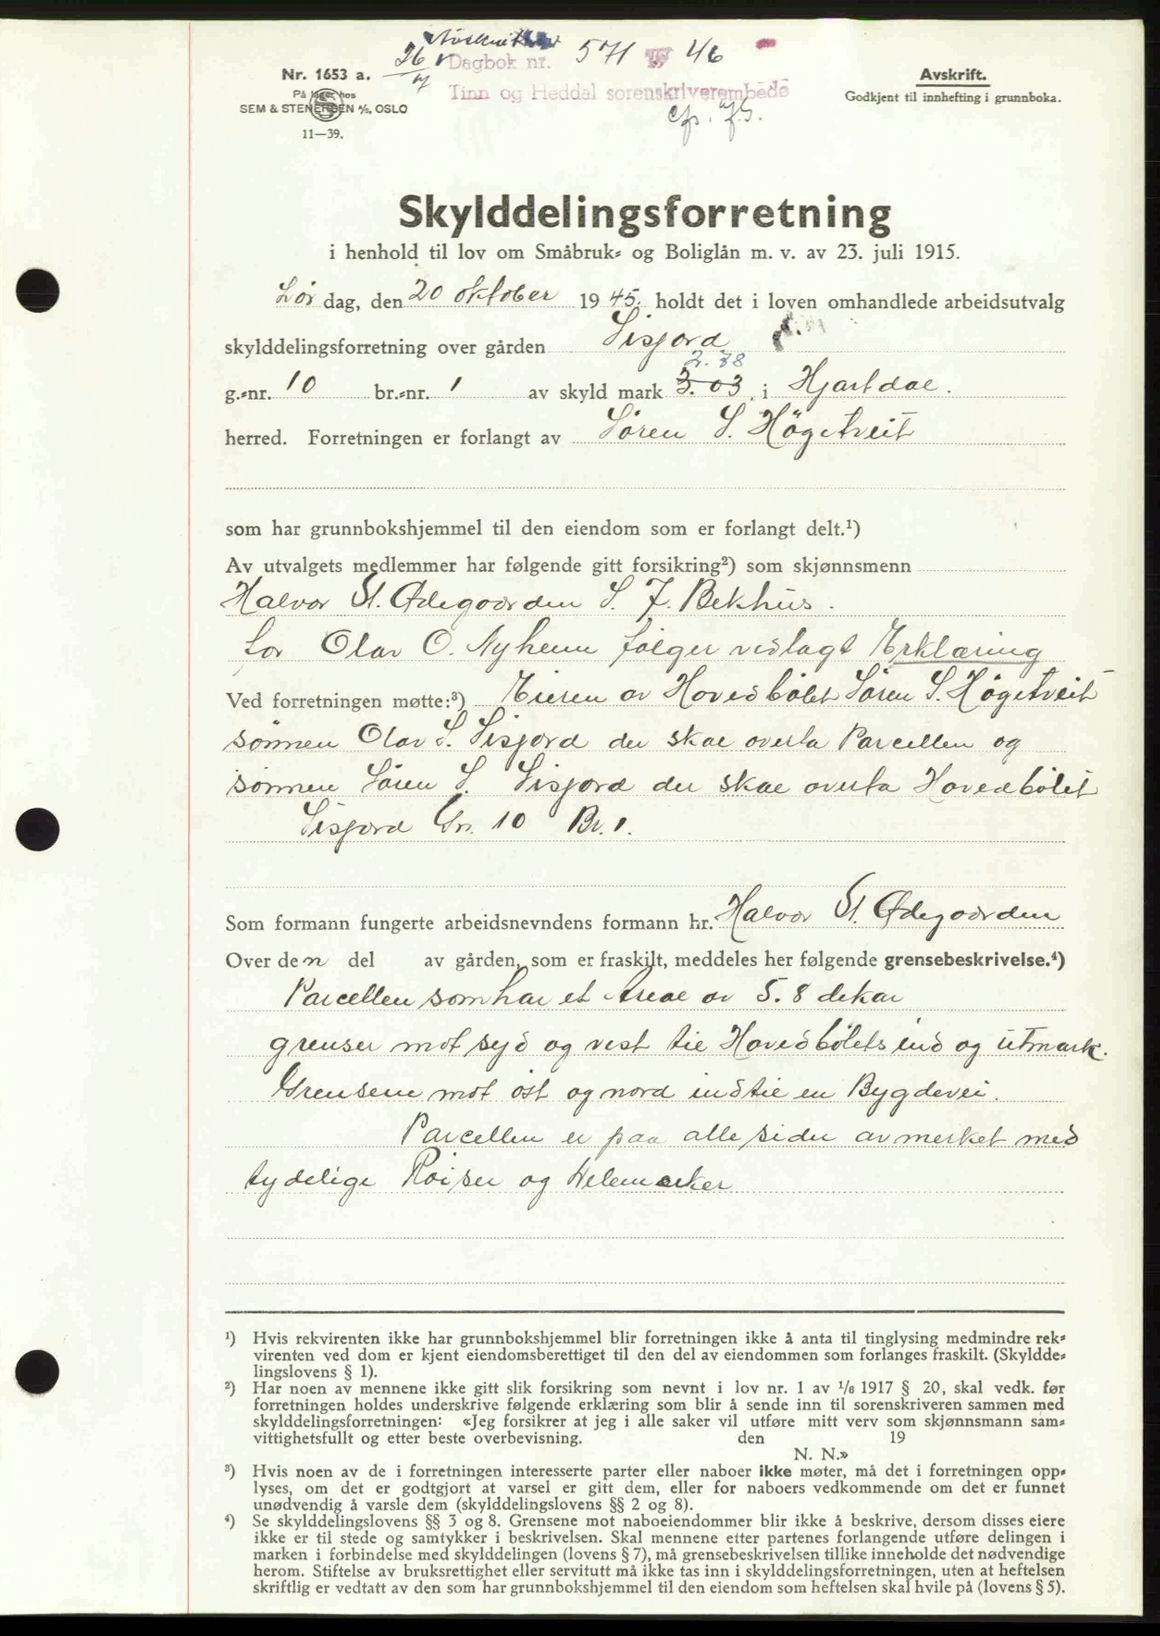 26/7
Dagbok nr. 571 46
Nr. 1653 a.
På lager hos
SEM & STENERSEN A/S, OSLO
11—39.
Tinn og Heddal sorenskriverembede
Avskrift.
Godkjent til innhefting i grunnboka.
Skylddelingsforretning
i henhold til lov om Småbruk- og Boliglån m. v. av 23. juli 1915.
Lør dag, den 20 oktober 1945. holdt det i loven omhandlede arbeidsutvalg
skylddelingsforretning over gården Sisjord
2.88
g.-nr. 10 br.-nr. 1 av skyld mark 3.03, i Hjartdal.
herred. Forretningen er forlangt av Søren S. Högetveit
som har grunnbokshjemmel til den eiendom som er forlangt delt.¹)
Av utvalgets medlemmer har følgende gitt forsikring²) som skjønnsmenn
Halvor St. Ødegaarden S. J. Bekhus.
for Olav O. Nyheim følger vedlagt Erklæring
Ved forretningen møtte:³) Eieren av Hovedbølet Søren S. Högetveit
sønnen Olav S. Sisjord der skal overta Parcellen og
sønnen Søren S. Sisjord der skal overta Hovedbølet
Sisjord Gr. 10 Br. 1.
Som formann fungerte arbeidsnevndens formann hr. Halvor St. Ødegaarden
Over den del av gården, som er fraskilt, meddeles her følgende grensebeskrivelse.⁴)
Parcellen som har et Areal av 5.8 dekar
grenser mot syd og vest til Hovedbølets ind og utmark.
Grensene mot öst og nord ind til en Bygdevei.
Parcellen er paa alle sider avmerket med
tydelige Röiser og Delemerker
¹) Hvis rekvirenten ikke har grunnbokshjemmel blir forretningen ikke å anta til tinglysing medmindre rek-
virenten ved dom er kjent eiendomsberettiget til den del av eiendommen som forlanges fraskilt. (Skyldde-
lingslovens § 1).
²) Har noen av mennene ikke gitt slik forsikring som nevnt i lov nr. 1 av 1/6 1917 § 20, skal vedk. før
forretningen holdes underskrive følgende erklæring som blir å sende inn til sorenskriveren sammen med
skylddelingsforretningen: «Jeg forsikrer at jeg i alle saker vil utføre mitt verv som skjønnsmann sam-
vittighetsfullt og etter beste overbevisning. den 19
N. N.»
³) Hvis noen av de i forretningen interesserte parter eller naboer ikke møter, må det i forretningen opp-
lyses, om det er godtgjort at varsel er gitt dem, eller for naboers vedkommende om det er funnet
unødvendig å varsle dem (skylddelingslovens §§ 2 og 8).
⁴) Se skylddelingslovens §§ 3 og 8. Grensene mot naboeiendommer blir ikke å beskrive, dersom disses eiere
ikke er til stede og samtykker i beskrivelsen. Skal mennene etter partenes forlangende utføre delingen i
marken i forbindelse med skylddelingen (lovens § 7), må grensebeskrivelsen tillike inneholde det nødvendige
herom. Stiftelse av bruksrettighet eller servitutt må ikke tas inn i skylddelingsforretningen, uten at heftelsen
skriftlig er vedtatt av den som har grunnbokshjemmel til den eiendom som heftelsen skal hvile på (lovens § 5).